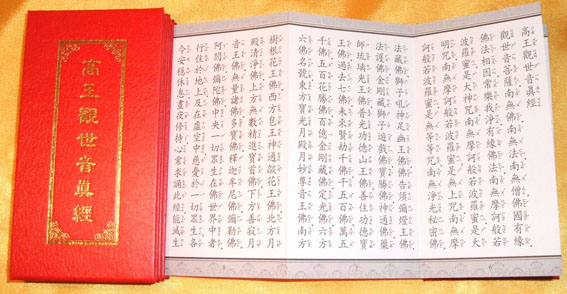 高王觀世音眞經
高王觀世音眞經
觀世音菩薩南無佛南無法南無僧佛國有緣
佛法相因常樂我淨有緣佛法南無摩訶般若
波羅蜜是大神咒南無摩訶般若波羅蜜是大
明咒南無摩訶般若波羅蜜是無上咒南無摩
訶般若波羅蜜是無等等咒南無淨光秘密佛
法藏佛獅子吼神足幽王佛佛告須彌燈王佛
法護佛金剛藏獅子遊戲佛寶勝佛神通佛藥
師琉璃光王佛普光功德山王佛善住功德寶
王佛過去七佛未來賢劫千佛千五百佛萬五
千佛五百花勝佛百億金剛藏佛定光佛六方
六佛名號東方寶光月殿月妙尊音王佛南方
樹根花王佛西方皂王神通燄花王佛北方月
殿清淨佛上方無數精進寶首佛下方善寂月
音王佛無量諸佛多寶佛釋迦牟尼佛彌勒佛
阿閦佛彌陀佛中央一切眾生在佛世界中者
行住於地上及在虛空中慈憂於一切眾生各
令安穩休息晝夜修持心常求誦此經能滅生